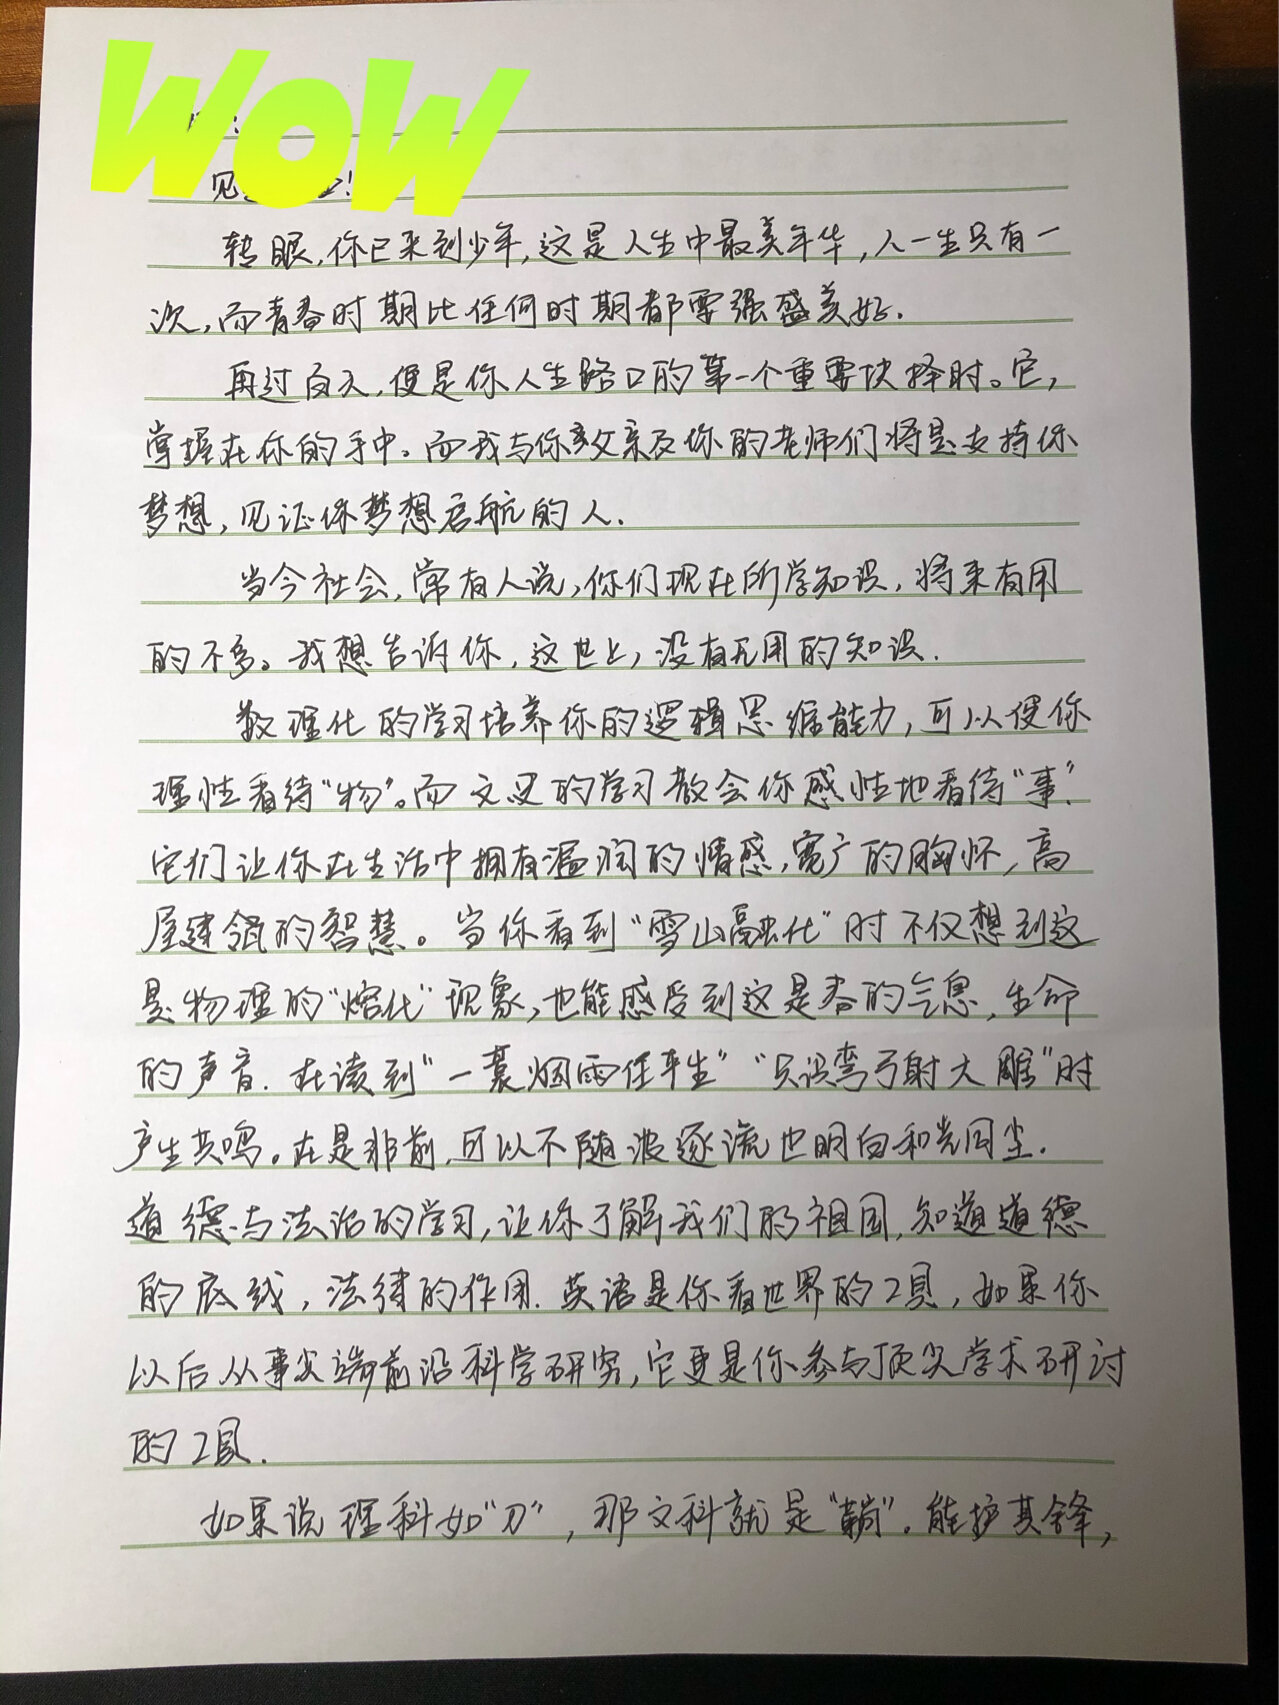 WOW
见!
转眼,你已来到少年,这是人生中最美年华,人一生只有一
次,而青春时期比任何时期都要强盛美好.
再过百天,便是你人生路口的第一个重要抉择时。它,
掌握在你的手中。而我与你父亲及你的老师们将是支持你
梦想,见证你梦想启航的人.
当今社会,常有人说,你们现在所学知识,将来有用
的不多。我想告诉你,这世上,没有无用的知识.
数理化的学习培养你的逻辑思维能力,可以使你
理性看待“物”。而文史的学习教会你感性地看待“事”.
它们让你在生活中拥有温润的情感,宽广的胸怀,高
屋建瓴的智慧。当你看到“雪山融化”时不仅想到这
是物理的“熔化”现象,也能感受到这是春的气息,生命
的声音.在读到“一蓑烟雨任平生”“只识弯弓射大雕”时
产生共鸣。在是非前,可以不随波逐流也明白和光同尘.
道德与法治的学习,让你了解我们的祖国,知道道德
的底线,法律的作用.英语是你看世界的工具,如果你
以后从事尖端前沿科学研究,它更是你参与顶尖学术研讨
的工具.
如果说理科如“刀”,那文科就是“鞘”.能护其锋,